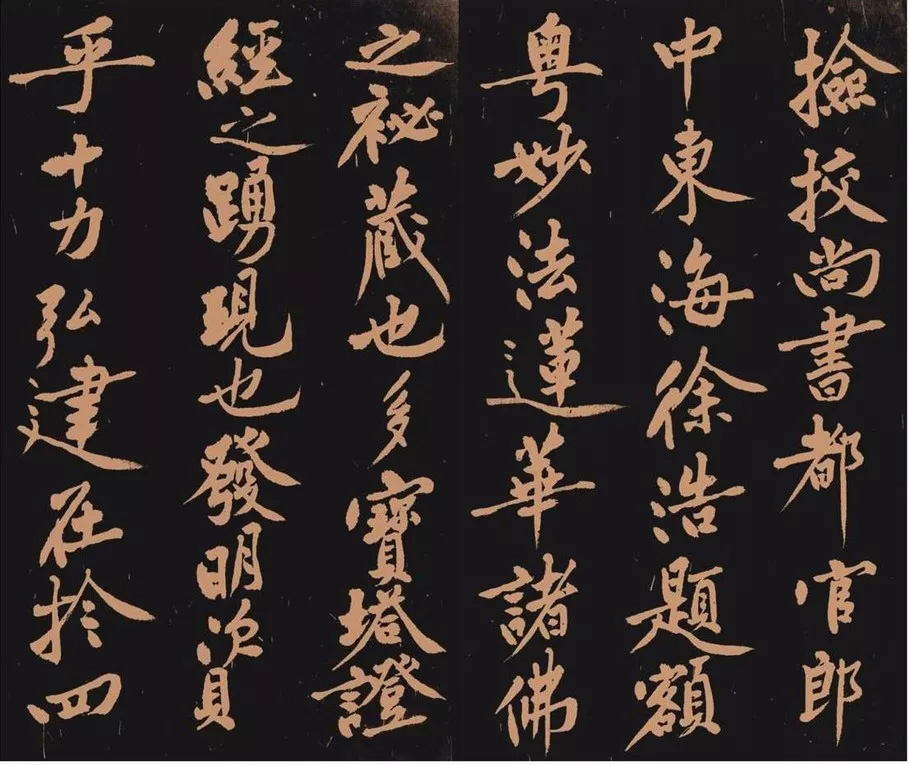 撿挍尚書都官郎
中東海徐浩題額
粵妙法蓮華諸佛
之祕藏也多寶塔證
經之踴現也發明資
乎十力弘建在於四